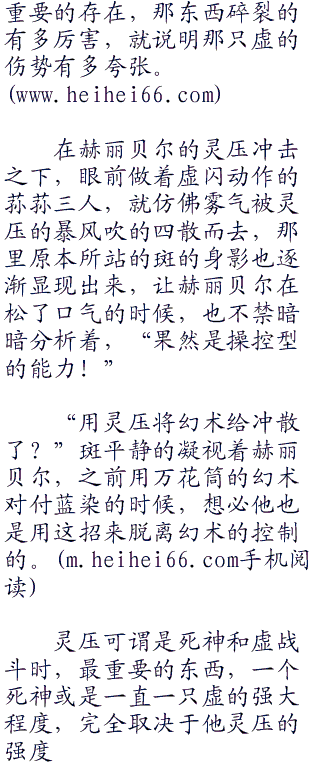 重要的存在，那东西碎裂的
有多厉害，就说明那只虚的
伤势有多夸张。
(www.heihei66.com)
在赫丽贝尔的灵压冲击
之下，眼前做着虚闪动作的
荪荪三人，就仿佛雾气被灵
压的暴风吹的四散而去，那
里原本所站的斑的身影也逐
渐显现出来，让赫丽贝尔在
松了口气的时候，也不禁暗
暗分析着，“果然是操控型
的能力！”
“用灵压将幻术给冲散
了？”斑平静的凝视着赫丽
贝尔，之前用万花筒的幻术
对付蓝染的时候，想必他也
是用这招来脱离幻术的控制
的。(m.heihei66.com手机阅
读)
灵压可谓是死神和虚战
斗时，最重要的东西，一个
死神或是一直一只虚的强大
程度，完全取决于他灵压的
强度